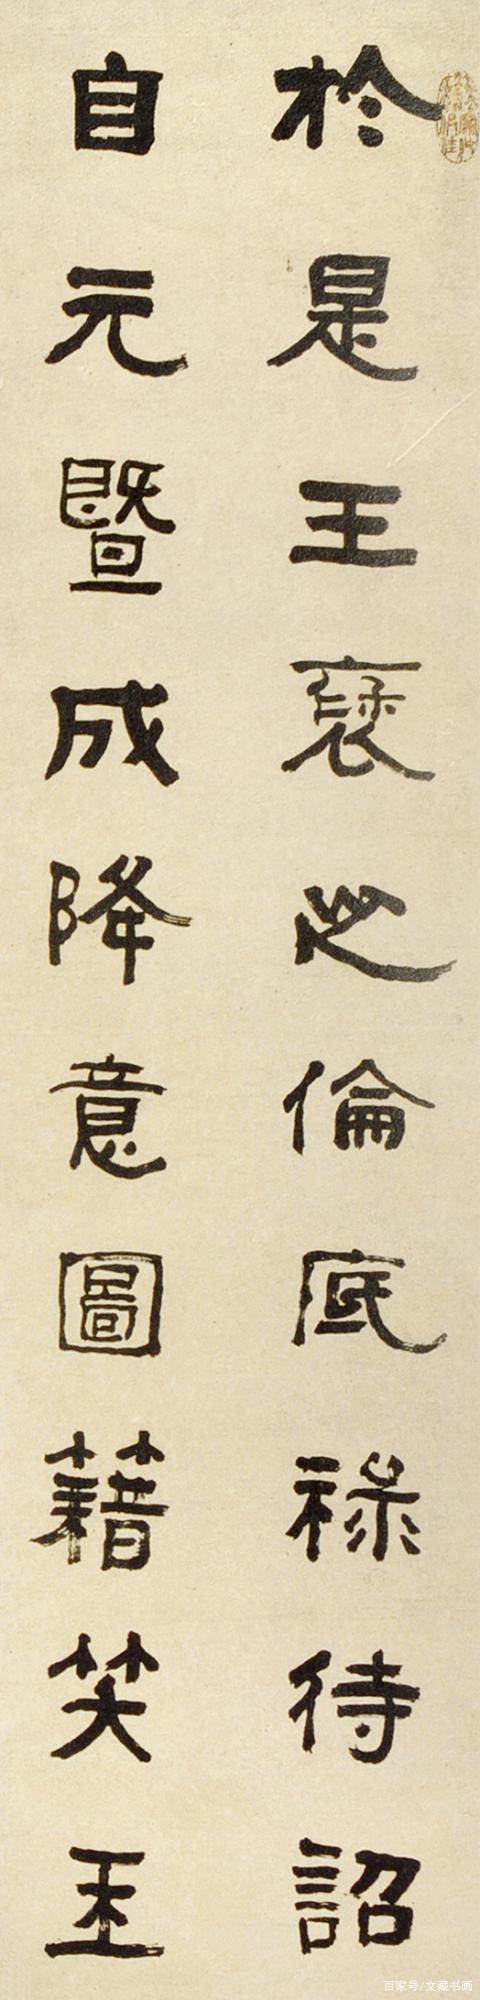 於是王褒之倫底祿待詔
自元暨成降意圖籍笑玉
百家号/文藏书画